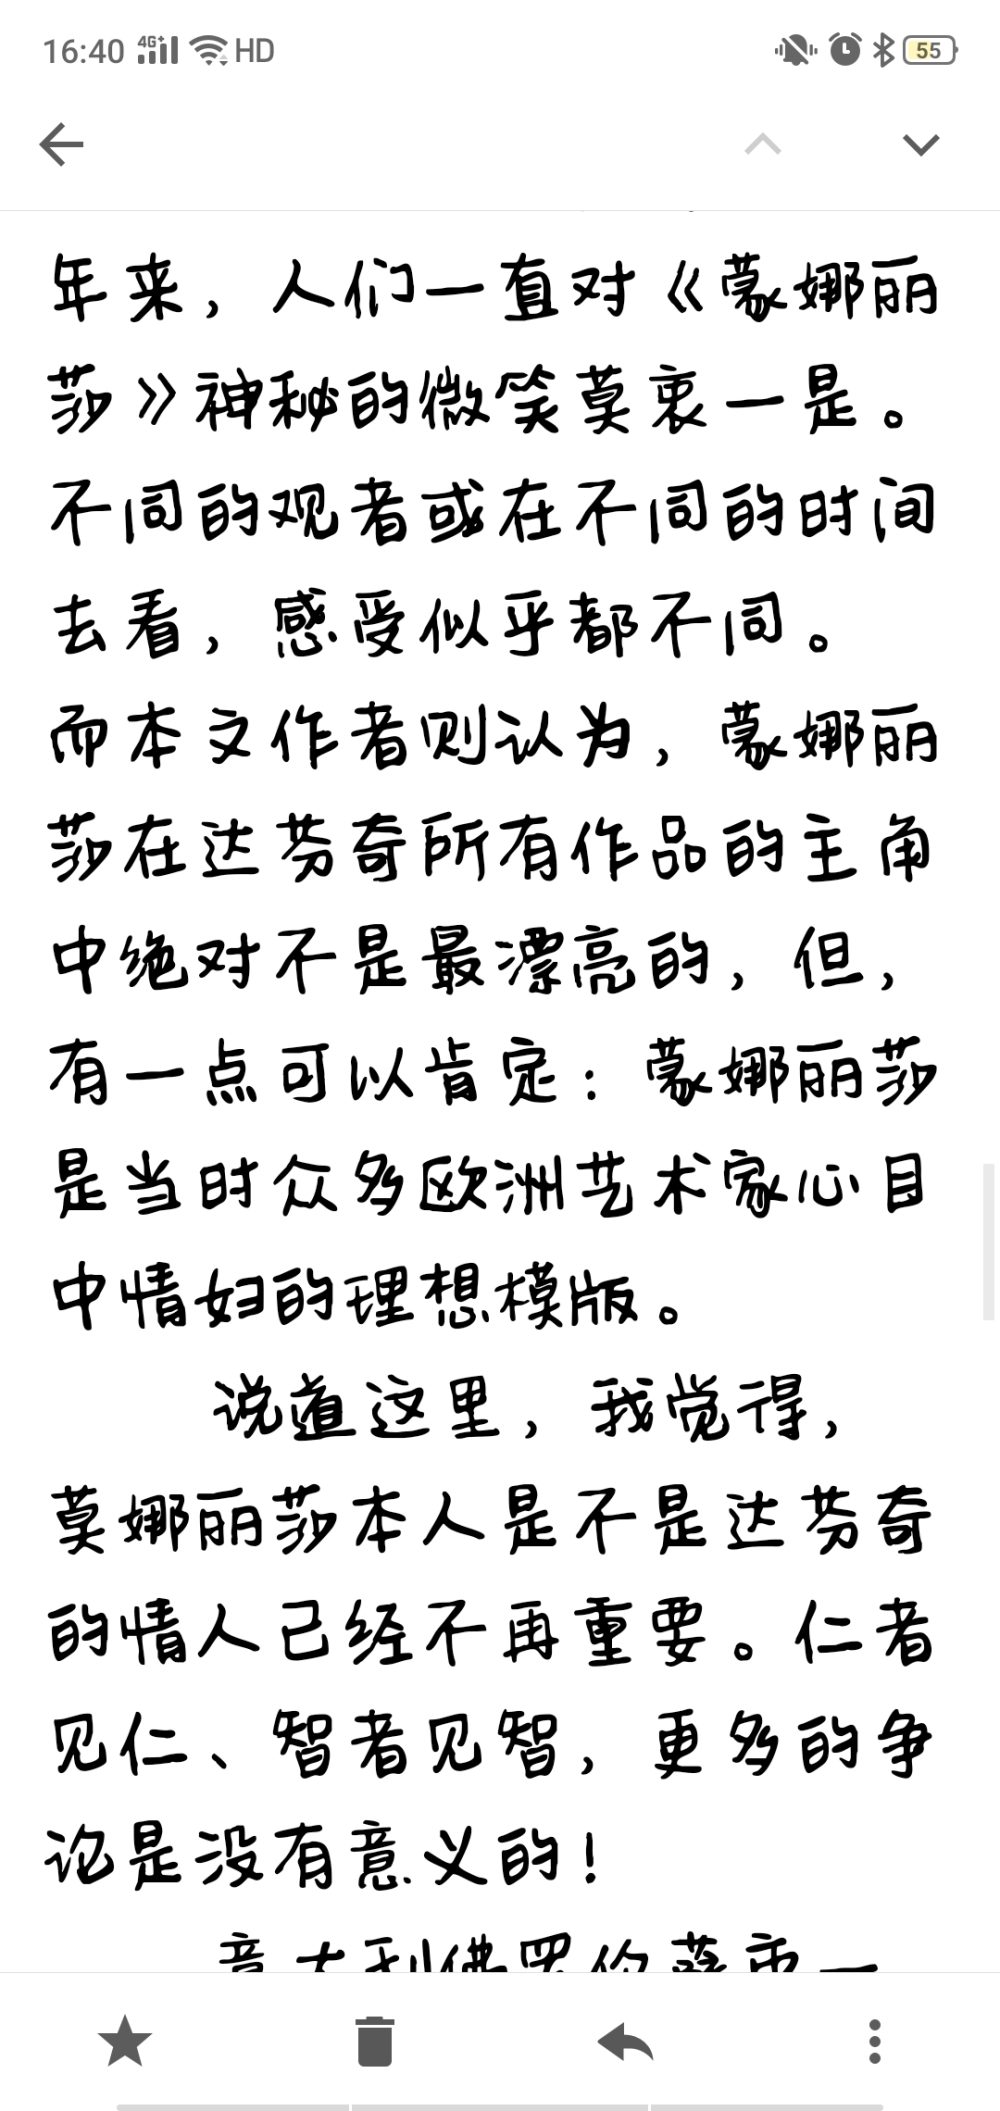 16:40 4G+ HD 55
年来，人们一直对《蒙娜丽
莎》神秘的微笑莫衷一是。
不同的观者或在不同的时间
去看，感受似乎都不同。
而本文作者则认为，蒙娜丽
莎在达芬奇所有作品的主角
中绝对不是最漂亮的，但，
有一点可以肯定：蒙娜丽莎
是当时众多欧洲艺术家心目
中情妇的理想模版。
说道这里，我觉得，
莫娜丽莎本人是不是达芬奇
的情人已经不再重要。仁者
见仁、智者见智，更多的争
论是没有意义的！
意大利佛罗伦萨市一